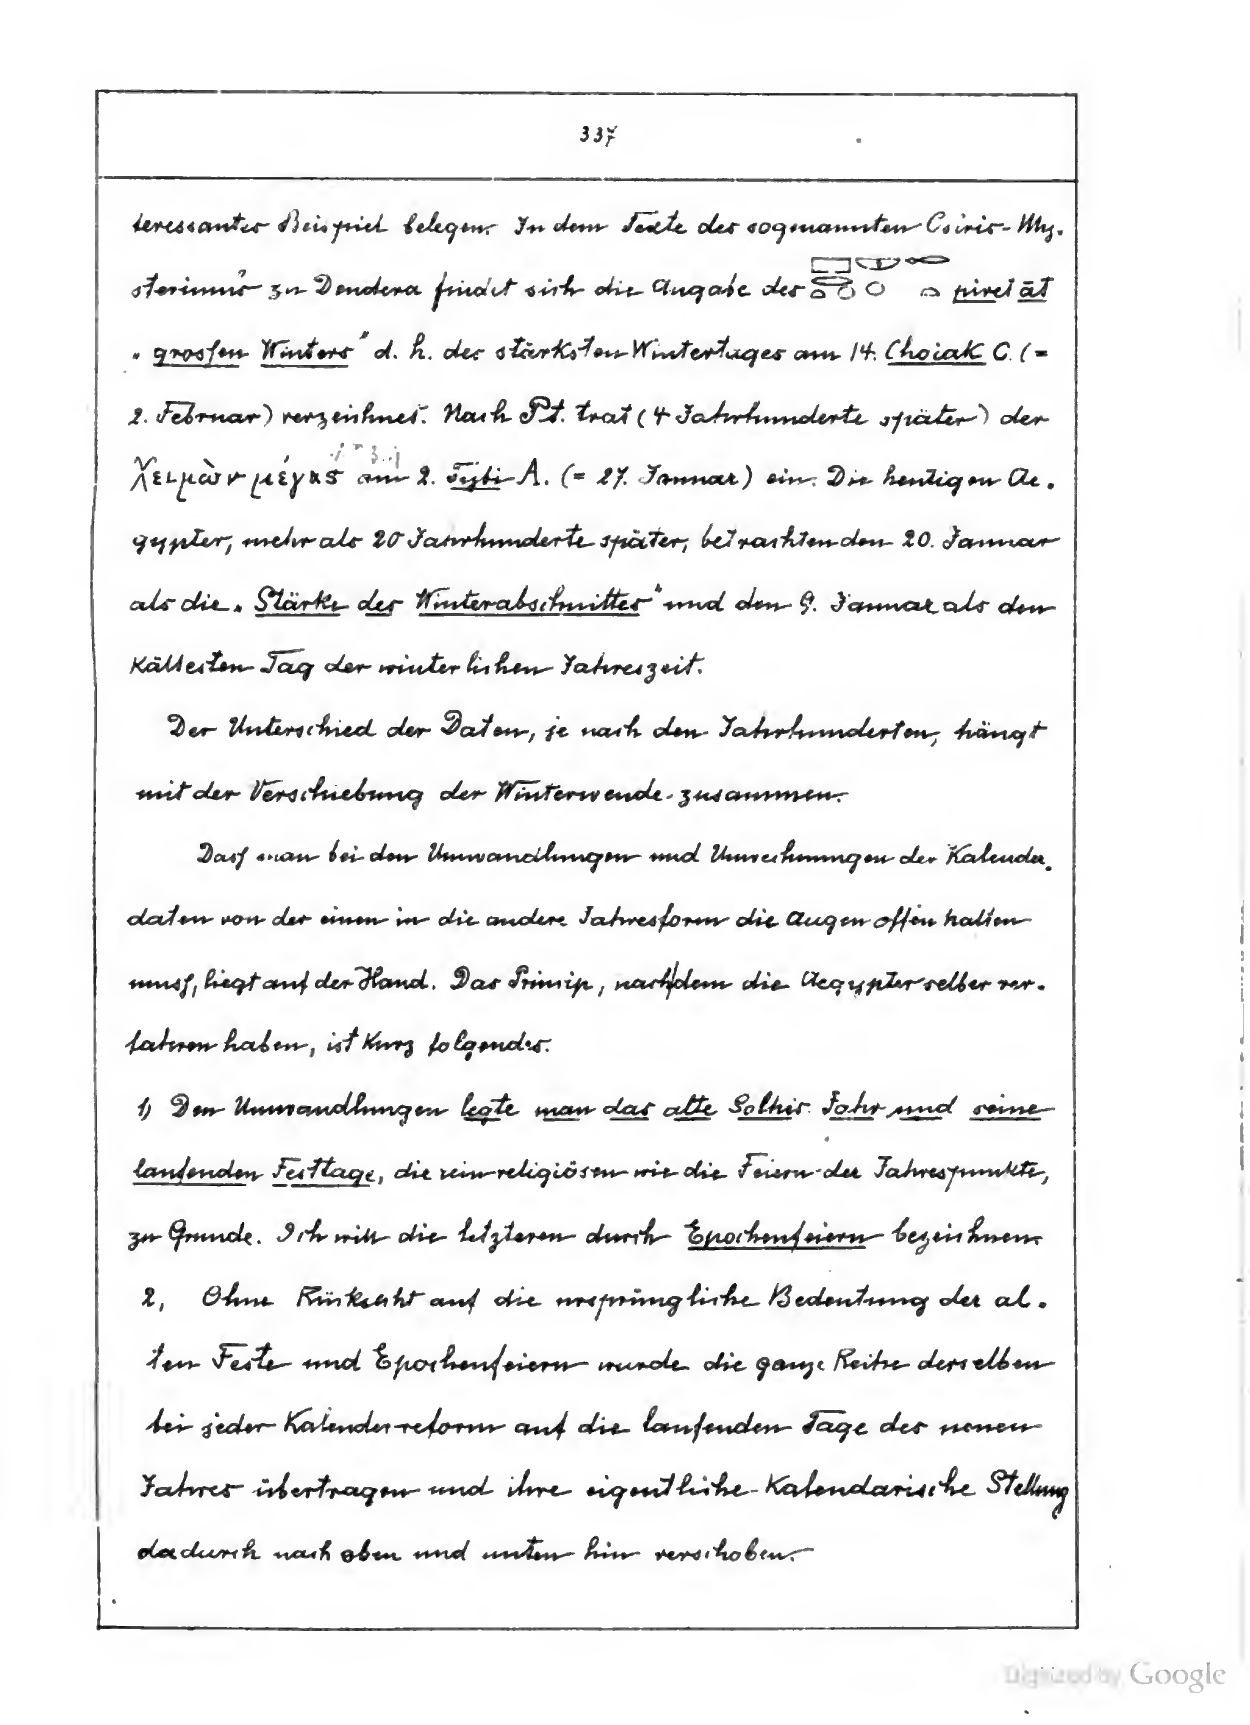 337
teressantes Beispiel belegen. In dem Texte des sogenannten Osiris-My-
steriums zu Dendera findet sich die Angabe des piret āt
„grossen Winters" d. h. des stärksten Wintertages am 14. Choiak C. (=
2. Februar) verzeichnet. Nach Pt. trat (4 Jahrhunderte später) der
Χειμὼν μέγας am 2. Tybi A. (= 27. Januar) ein. Die heutigen Ae-
gypter, mehr als 20 Jahrhunderte später, betrachten den 20. Januar
als die „Stärke des Winterabschnittes" und den 9. Januar als den
kältesten Tag der winterlichen Jahreszeit.
Der Unterschied der Daten, je nach den Jahrhunderten, hängt
mit der Verschiebung der Winterwende zusammen.
Dass man bei den Umwandlungen und Umrechnungen der Kalender-
daten von der einen in die andere Jahresform die Augen offen halten
muss, liegt auf der Hand. Das Princip, nach dem die Aegypter selber ver-
fahren haben, ist kurz folgendes.
1) Den Umwandlungen legte man das alte Sothis-Jahr und seine
laufenden Festtage, die rein religiösen wie die Feiern der Jahrespunkte,
zu Grunde. Ich will die letzteren durch Epochenfeiern bezeichnen.
2, Ohne Rücksicht auf die ursprüngliche Bedeutung der al-
ten Feste und Epochenfeiern wurde die ganze Reihe derselben
bei jeder Kalenderreform auf die laufenden Tage des neuen
Jahres übertragen und ihre eigentliche kalendarische Stellung
dadurch nach oben und unten hin verschoben.
Digitized by Google